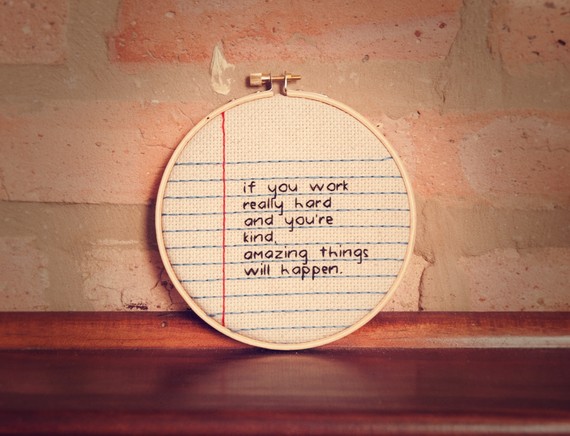 if you work
really hard
and you're
kind,
amazing things
will happen.